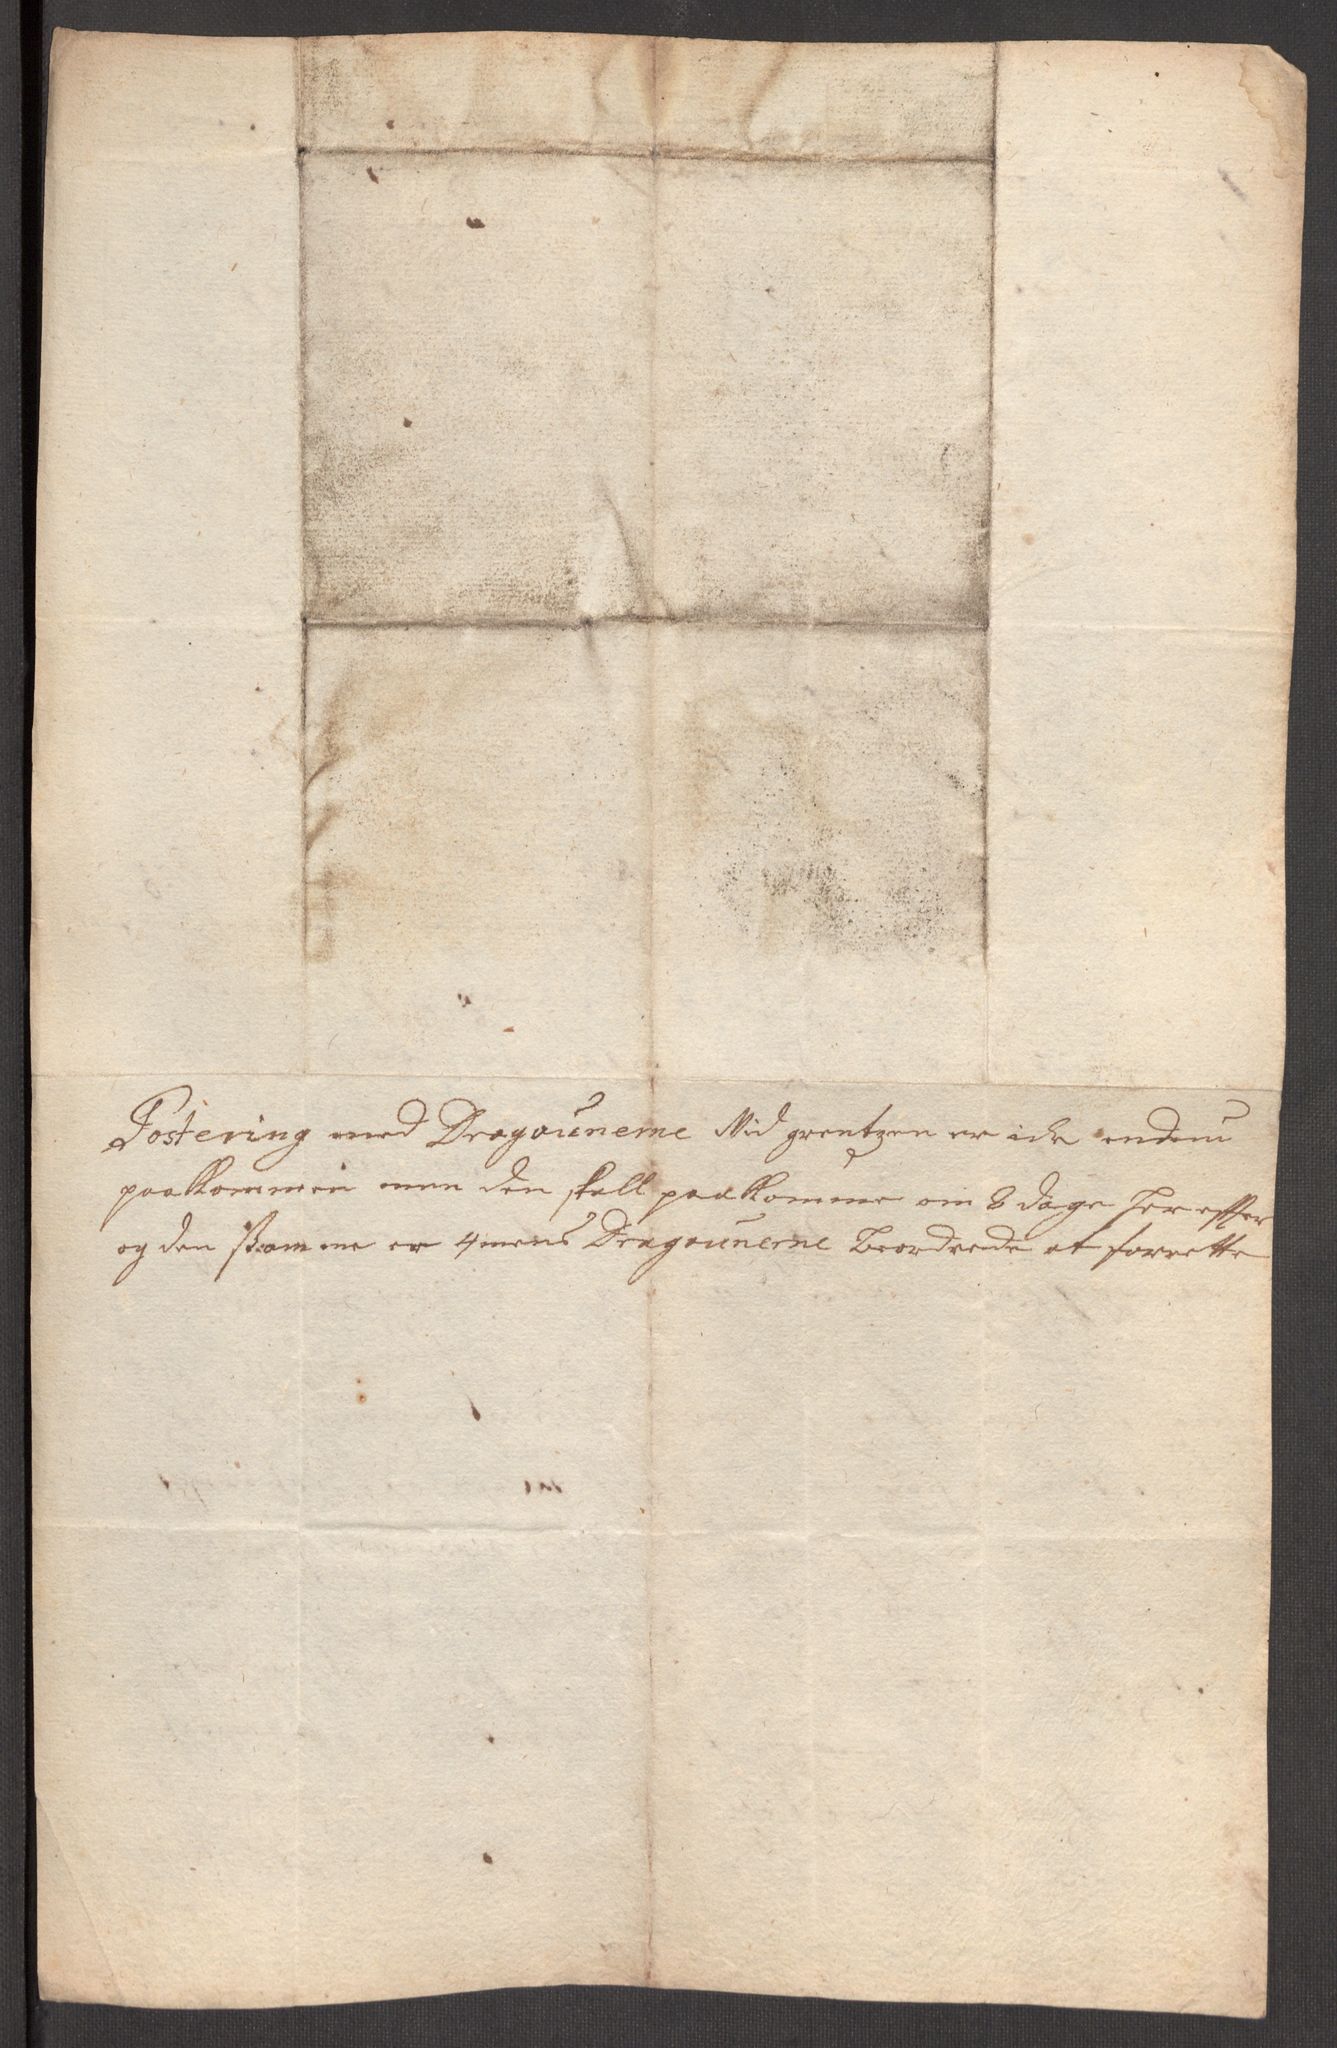 Postering med Dragounerne Vid grentzen er icke endnu
paakommen men den skall paakomme om 8 dage her effter
og den samme er 4 mens Dragounerne Beordrede at forrette